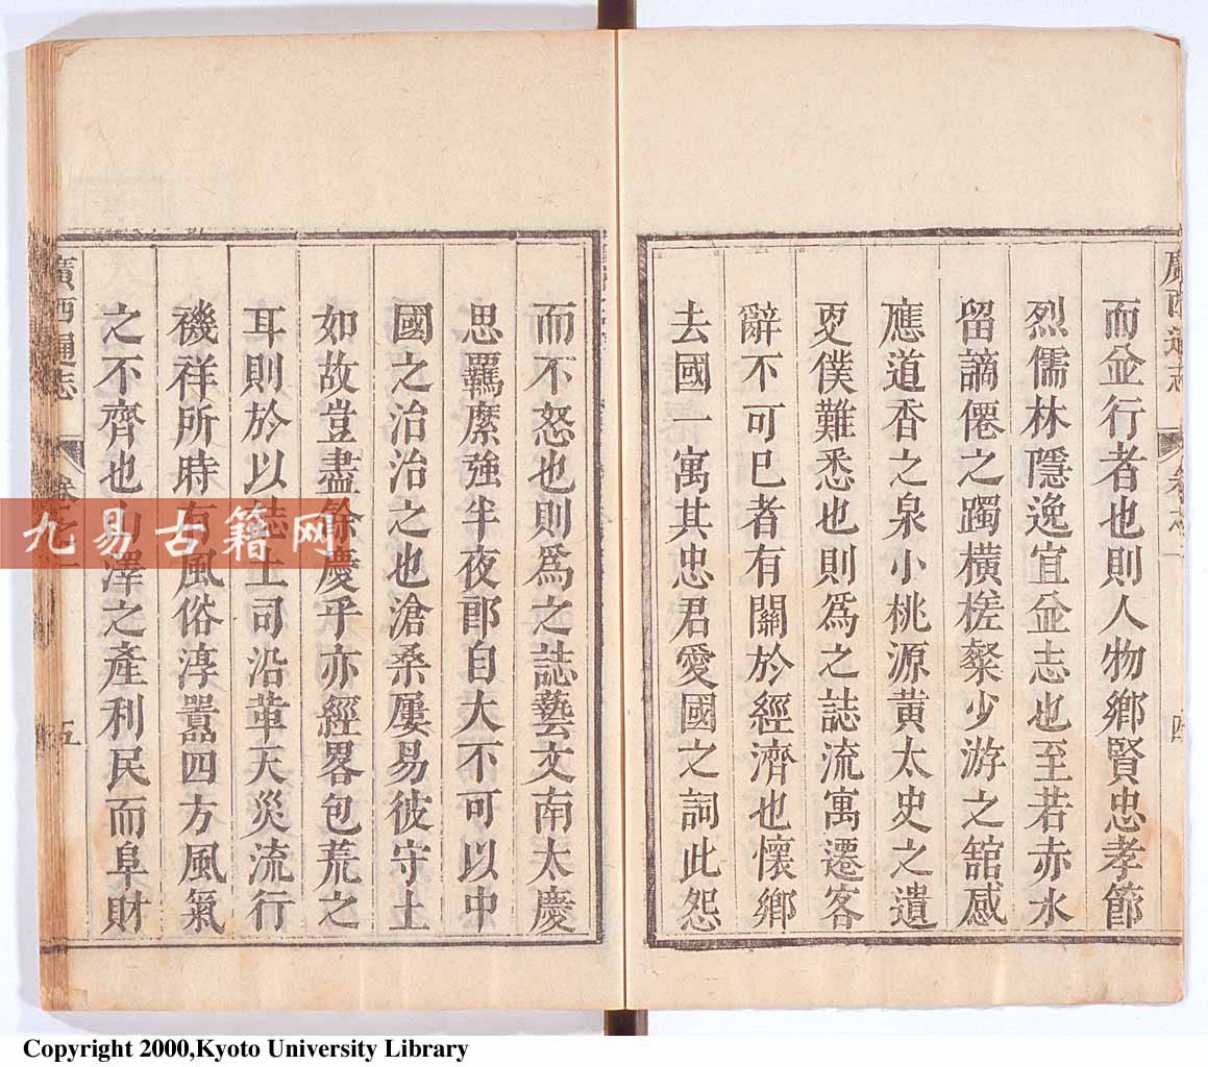 廣西通志
而並行者也則人物鄉賢忠孝節
烈儒林隱逸宜並志也至若赤水
留謫僊之躅橫槎粲少游之舘感
應道香之泉小桃源黄太史之遺
叓僕難悉也則爲之誌流寓遷客
辭不可已者有關於經濟也懷鄉
去國一寓其忠君愛國之詞此怨
而不怒也則爲之誌藝文南太慶
思羈縻強半夜郎自大不可以中
國之治治之也滄桑屢易彼守土
如故豈盡餘慶乎亦經畧包荒之
耳則於以誌土司沿革天災流行
禨祥所時有風俗淳嚚四方風氣
之不齊也山澤之產利民而阜財
廣西通志
五
九易古籍网
Copyright 2000,Kyoto University Library